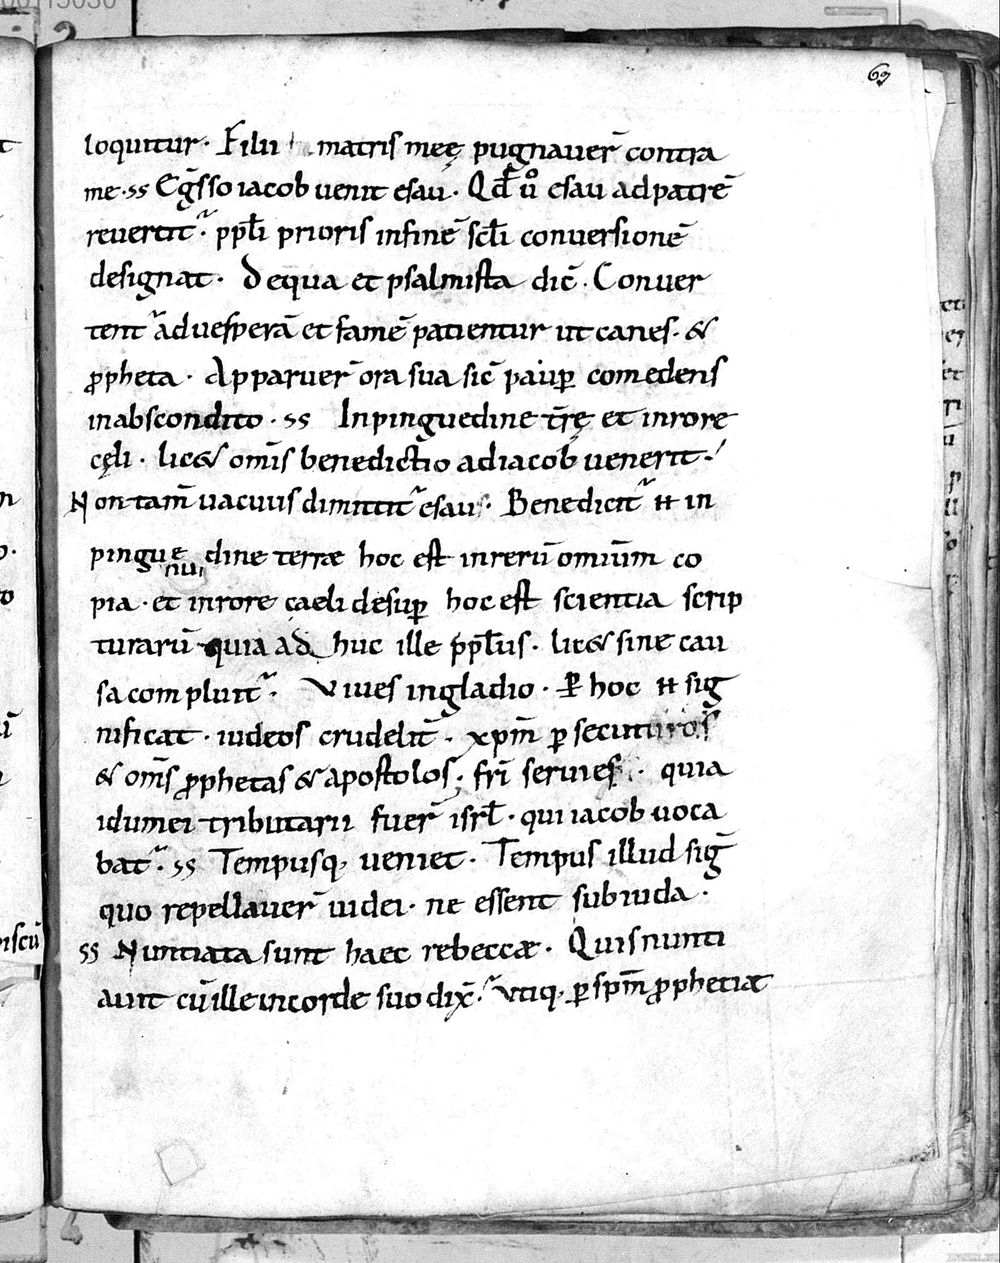 63
loquitur· Filii matris meę pugnauer̄ contra
me·ss Eḡsso iacob uenit esau· Qd̄ u̇ esau ad patrē
reuertit᷑· ppl̄i prioris in finē scl̄i conuersionē
designat· De qua et psalmista dic̄· Conuer
tent᷑ ad uesperā et famē patientur ut canes· &
ꝓpheta· Apparuer̄ ora sua sic̄ paup̄ comedens
in abscondito·ss In pinguedine tr̄ę et in rore
cęli· lic& om̄is benedictio ad iacob uenerit·
Non tam̄ uacuus dimittit᷑ esau· Benedicit᷑ H in
pingue dine terræ hoc est in rerū omium̄ co
pia· et in rore caeli desup̄ hoc est scientia scrip
turarū quia ad huc ille p̄pl̄us· lic& sine cau
sa compluit᷑· Viues in gladio· Ꝑ hoc H sig
nificat· iudeos crudelit̄· xp̄m ꝑsecuturos
& om̄s ꝓphetas & apostolos; fr̄i seruies· quia
idumei tributarii fuer̄ isrl̄· qui iacob uoca
bat᷑·ss Tempusq; ueniet· Tempus illud sig̅
quo repellauer̄ iudei· ne essent sub iuda·
ss Nuntiata sunt haec rebeccæ· Quis nunti
auit cū ille in corde suo dix̄· Vtiq; ꝑ sp̄m ꝓphetiæ